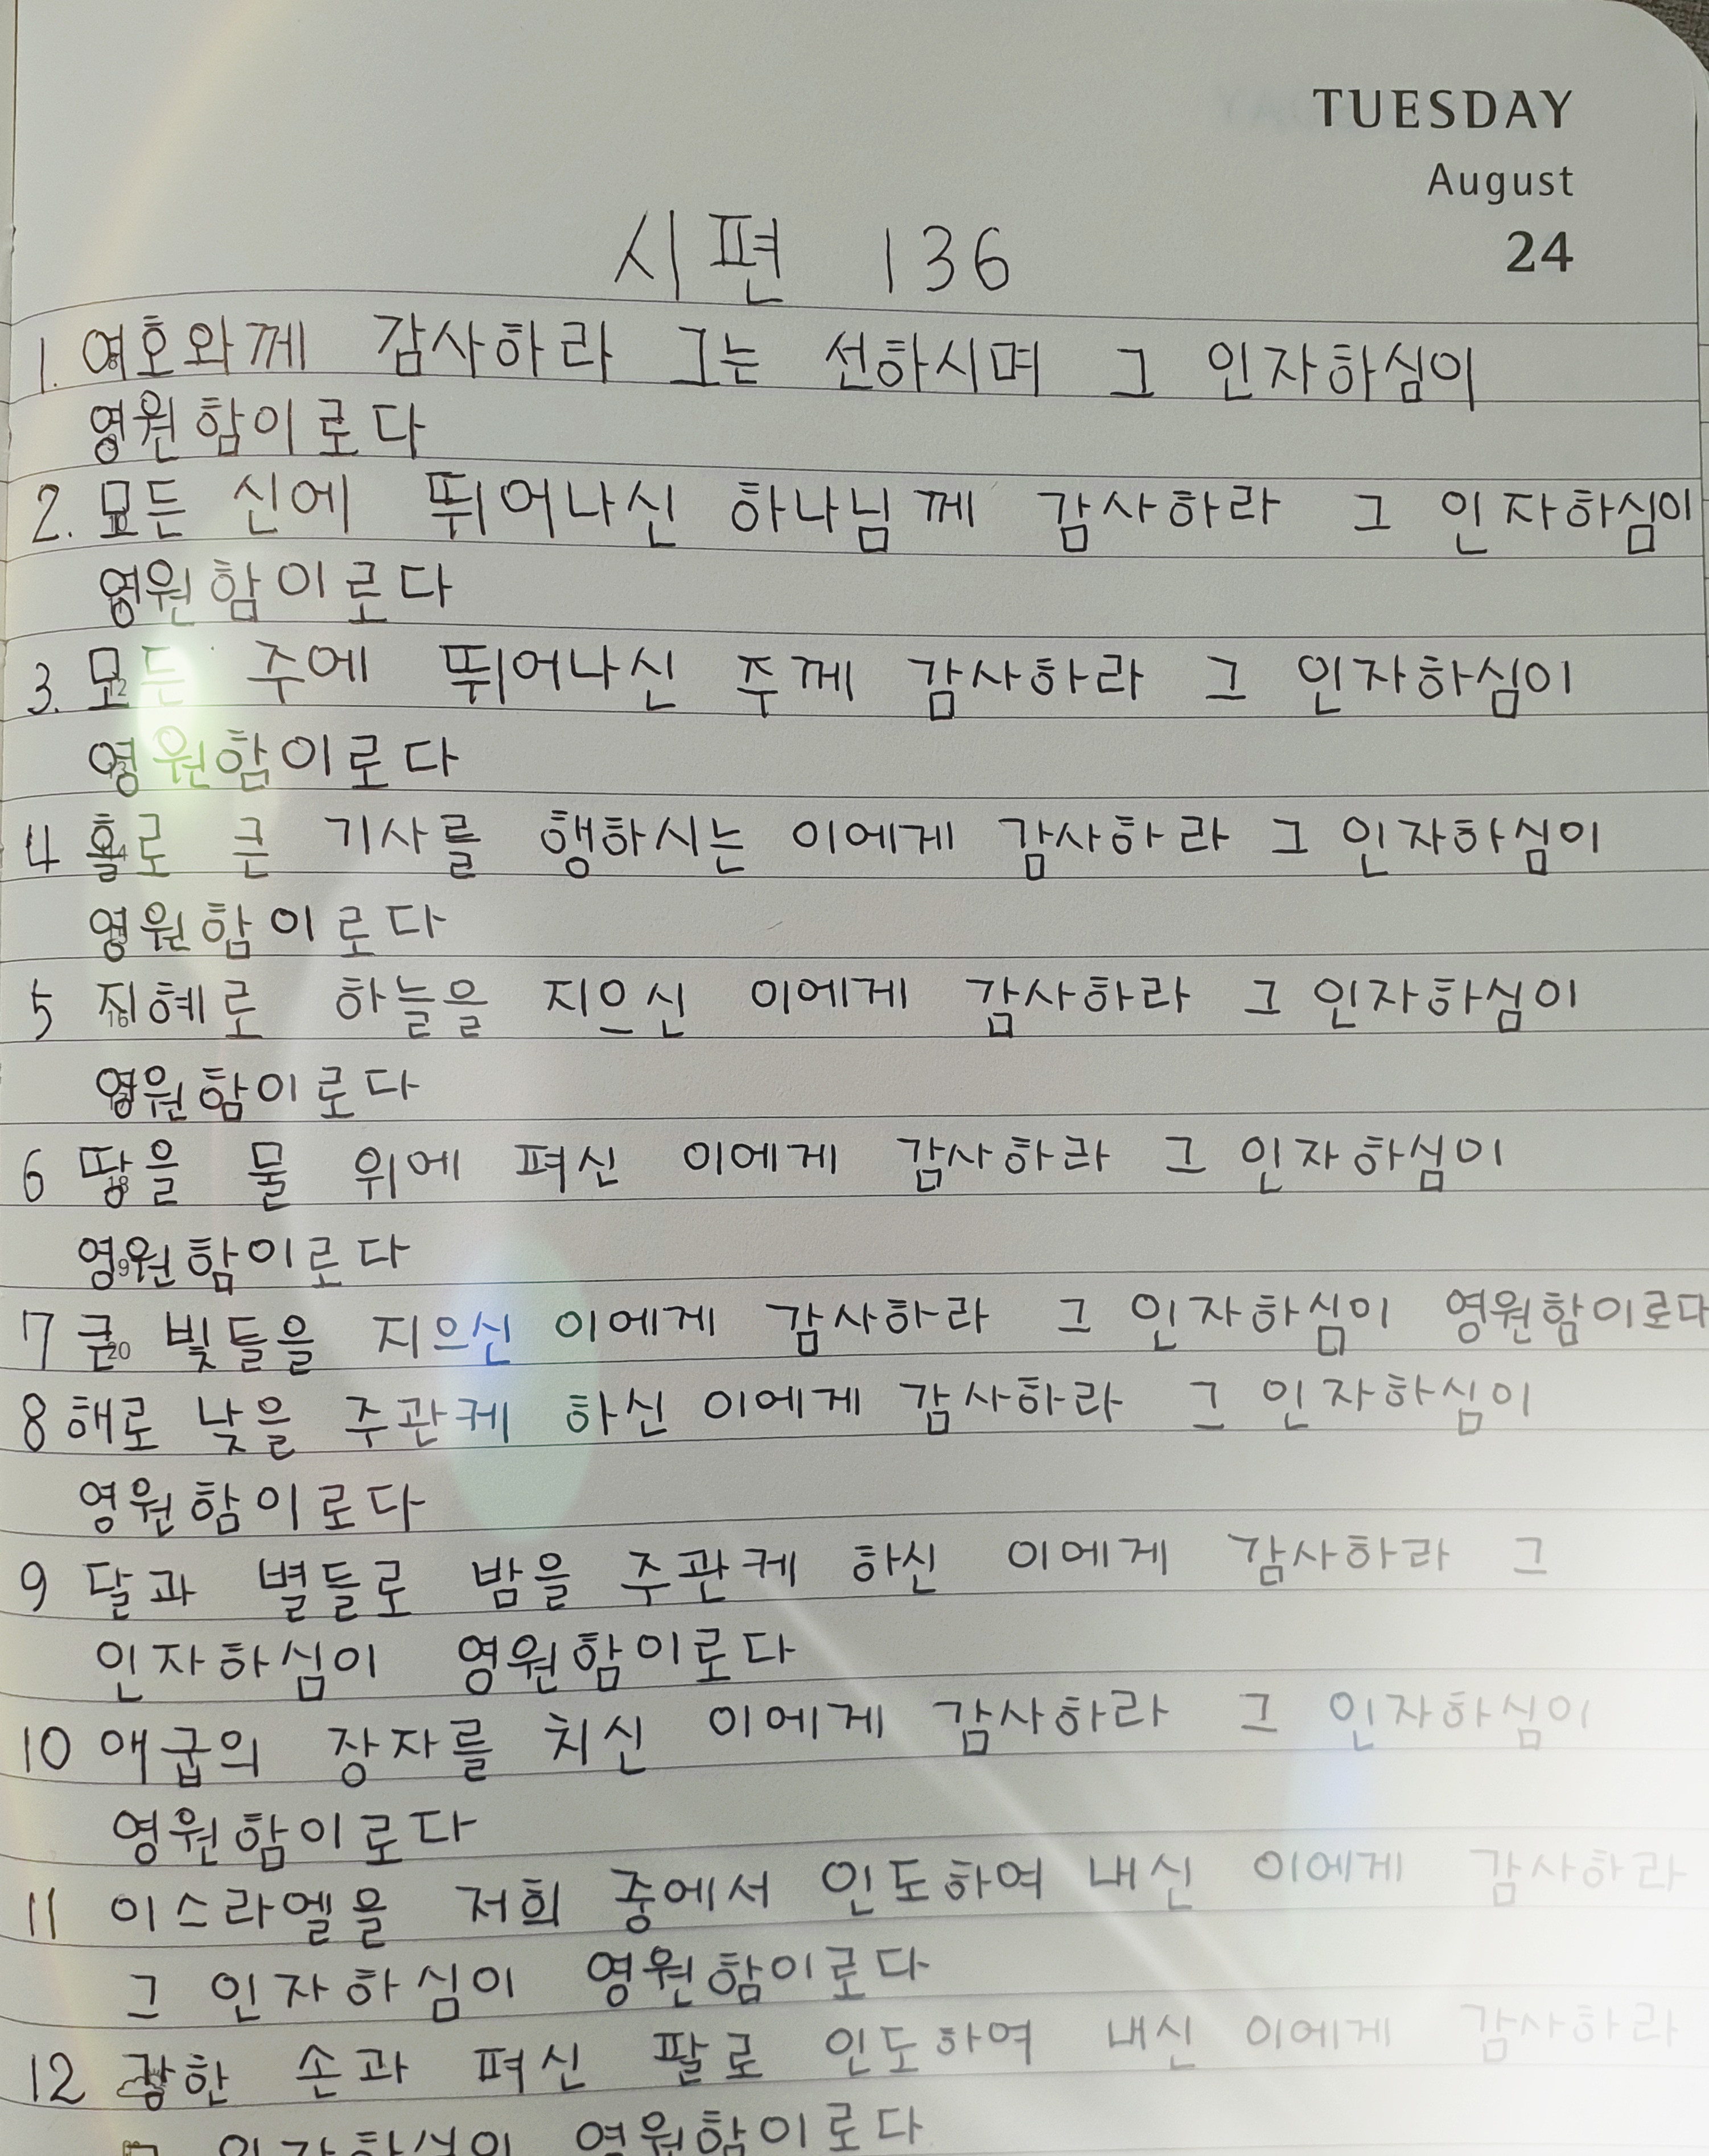 TUESDAY
August
24
시편 136
1. 여호와께 감사하라 그는 선하시며 그 인자하심이
영원함이로다
2. 모든 신에 뛰어나신 하나님께 감사하라 그 인자하심이
영원함이로다
3. 모든 주에 뛰어나신 주께 감사하라 그 인자하심이
영원함이로다
4 홀로 큰 기사를 행하시는 이에게 감사하라 그 인자하심이
영원함이로다
5 지혜로 하늘을 지으신 이에게 감사하라 그 인자하심이
영원함이로다
6 땅을 물 위에 펴신 이에게 감사하라 그 인자하심이
영원함이로다
7 큰 빛들을 지으신 이에게 감사하라 그 인자하심이 영원함이로다
8 해로 낮을 주관케 하신 이에게 감사하라 그 인자하심이
영원함이로다
9 달과 별들로 밤을 주관케 하신 이에게 감사하라 그
인자하심이 영원함이로다
10 애굽의 장자를 치신 이에게 감사하라 그 인자하심이
영원함이로다
11 이스라엘을 저희 중에서 인도하여 내신 이에게 감사하라
그 인자하심이 영원함이로다
12 강한 손과 펴신 팔로 인도하여 내신 이에게 감사하라
인자하심이 영원함이로다